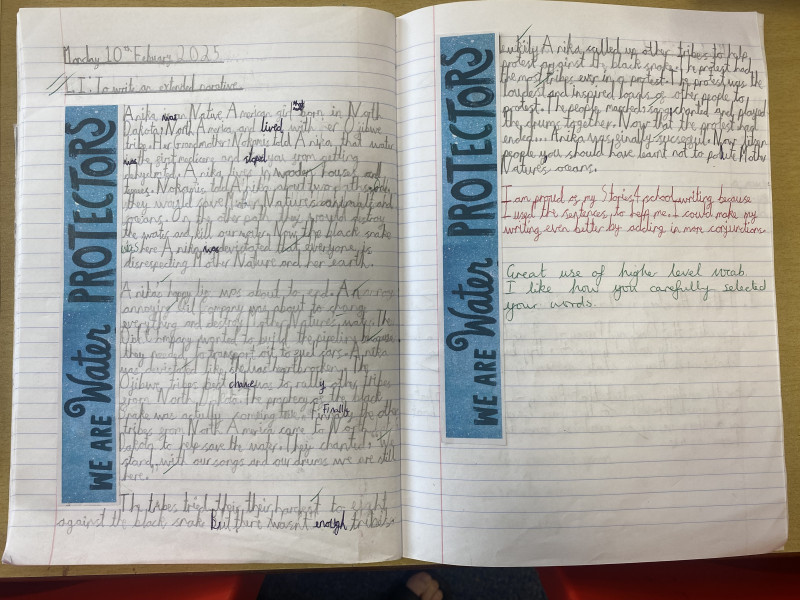 Monday 10th Febuary 2025
L.I: To write an extended narrative.
WE ARE Water PROTECTORS
Anika was Native American girl that born in North
Dakota, North America and lived with er Ojibwe
tribe. Her grandmother Nokomis told Anika that water
was the first medicare and stoped you from getting
dehydrated. Anika lives in wooden houses and
tipies. Nokomis told Anika about two paths
they would save Mother Natures animals and
oceans. On the other path they would destroy
the water and kill our water. Now the black snake
was here Anika was devastated that everyone is
disrespecting Mother Nature and her earth.
Anikas happy life was about to end. An
annoying oil company was about to change
everything and destroy Mother Natures water. The
Oil Company wanted to build the pipeline because
they needed to transport oil to fuel cars. Anika
was devistated like she was heartbroken. The
Ojibwe tribes best chance was to rally other tribes
from North Dakota. The prophecy of the black
snake was actually coming true. Finally the other
tribes from North America came to North
Dakota to help save the water. They chanted "We
stand, with our songs and our drums we are still
here."
The tribes tried their their hardest to fight
against the black snake but there wasn't enough tribes.
WE ARE Water PROTECTORS
Anika called up other tribes to help
protest against the black snake. The protest had
the most tribes ever in a protest. The protest was the
loudest and inspired loads of other people to
protest. The people marched, sang, chanted and played
the drums together. Now that the protest had
ended... Anika was finally succesful. Now
people you should have learnt not to polute Mother
Natures oceans.
I am proud of my Stories 4 school writing because
I used the sentences to help me. I could make my
writing even better by adding in more conjunctions.
Great use of higher level vocab.
I like how you carefully selected
your words.